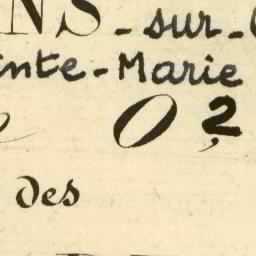 NS-sur-
inte-Marie
0,2
des